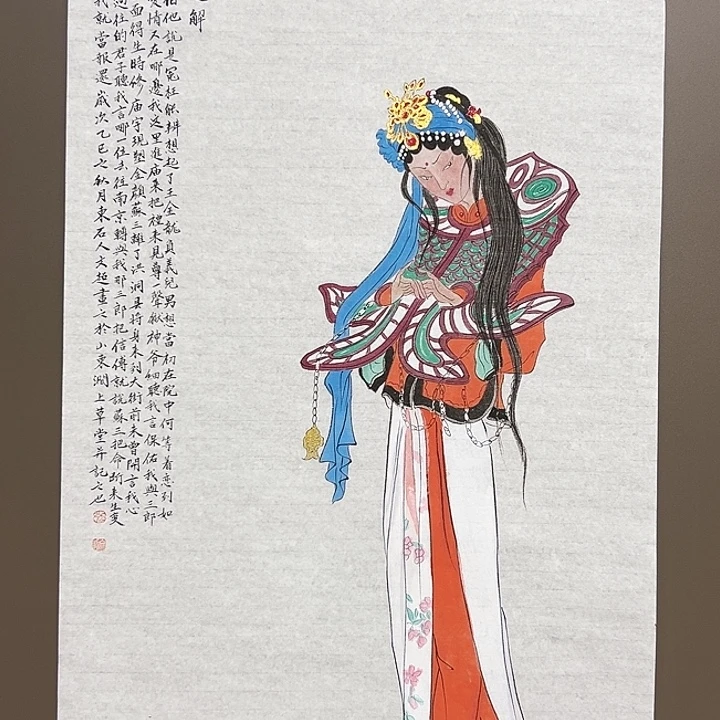 解
相他說是冤枉能辨想起了王金龍負義兒男想當初在院中何等着戀到如
情又在哪邊我这里進庙來把禮來見尊一聲獄神爺細聽我言保佑我與三郎
面得生時修庙宇現塑金顏蘇三離了洪洞县將身來到大街前未曾開言我心
往的君子聽我言哪一位去往南京轉與我那三郎把信傳就說蘇三把命斷來生变
我就當報還歲次乙巳之秋月東石人文超畫之於山東澗上草堂并記之也